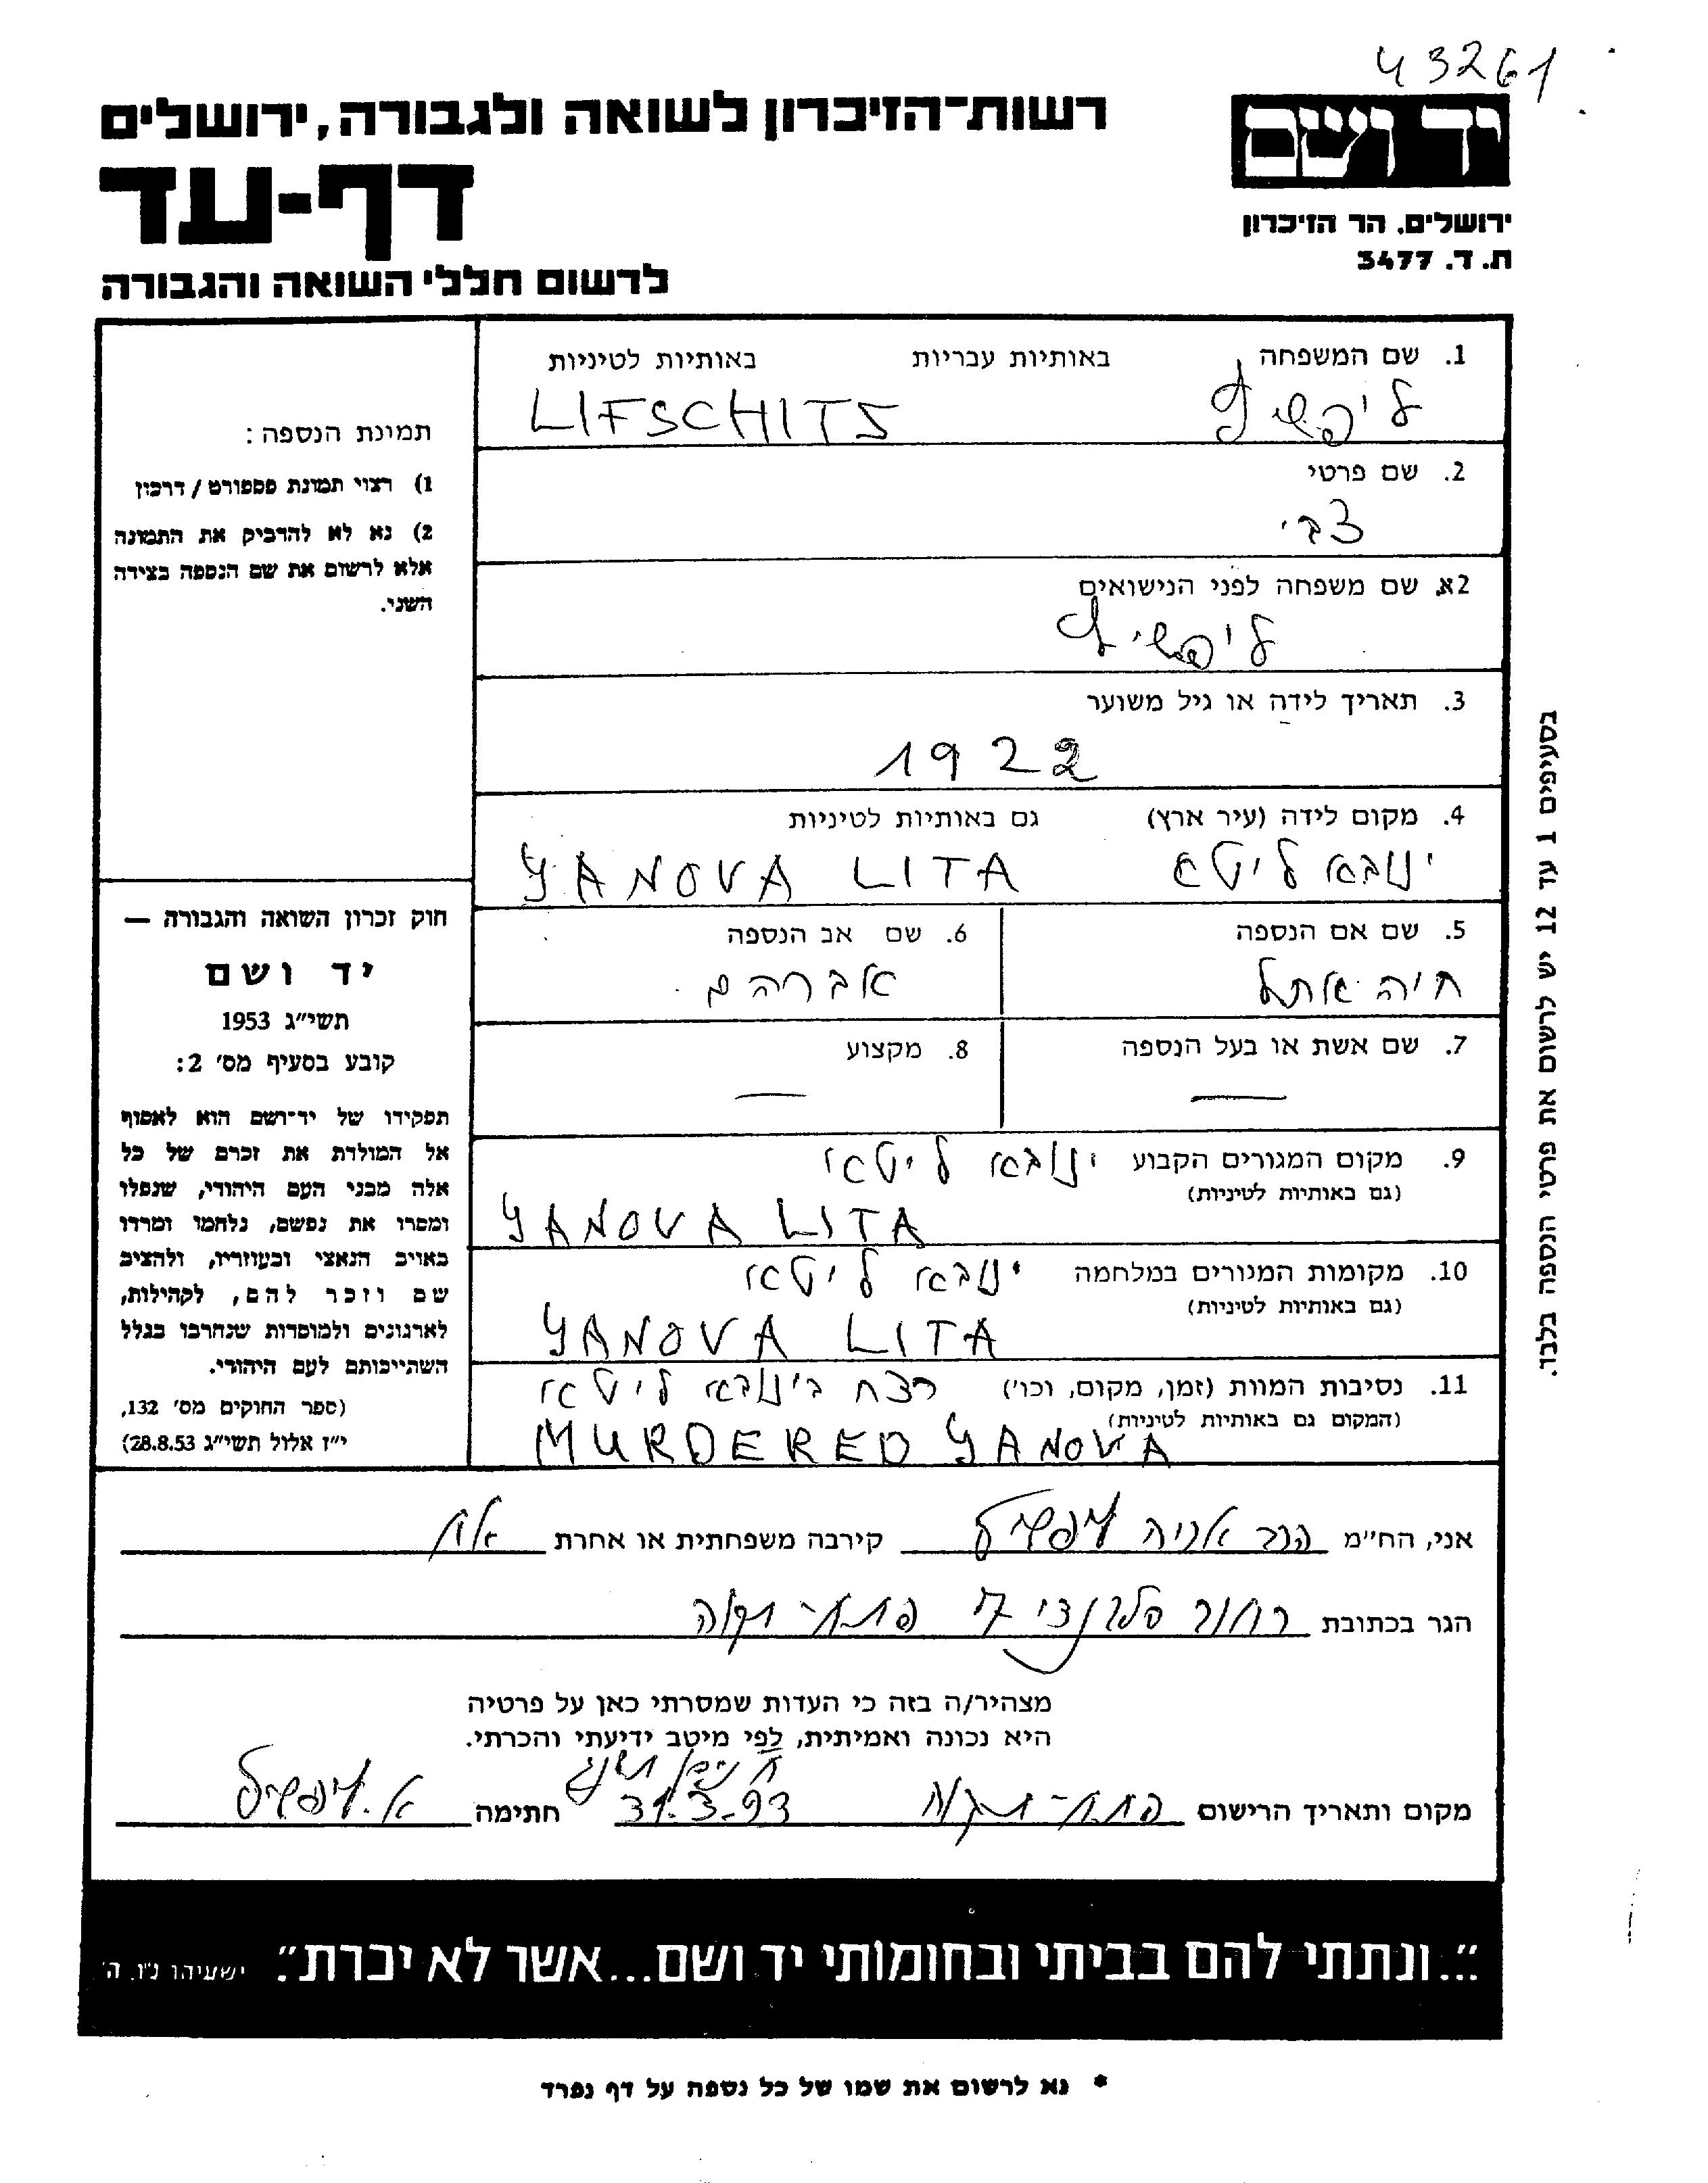 43261
רשות-הזיכרון לשואה ולגבורה, ירושלים
יד ושם
דף-עד
ירושלים. הר הזיכרון
ת. ד. 3477
לרשום חללי השואה והגבורה
1. שם המשפחה באותיות עבריות באותיות לטיניות
ליפשיץ LIFSCHITS
2. שם פרטי
צבי
2א. שם משפחה לפני הנישואים
ליפשיץ
3. תאריך לידה או גיל משוער
1922
4. מקום לידה (עיר ארץ) גם באותיות לטיניות
ינובא ליטא YANOVA LITA
5. שם אם הנספה 6. שם אב הנספה
חיה אתל אברהם
7. שם אשת או בעל הנספה 8. מקצוע
— —
9. מקום המגורים הקבוע ינובא ליטא
(גם באותיות לטיניות)
YANOVA LITA
10. מקומות המגורים במלחמה ינובא ליטא
(גם באותיות לטיניות)
YANOVA LITA
11. נסיבות המוות (זמן, מקום, וכו') רצח בינובא ליטא
(המקום גם באותיות לטיניות)
MURDERED YANOVA
תמונת הנספה:
1) רצוי תמונת פספורט / דרכון
2) נא לא להדביק את התמונה
אלא לרשום את שם הנספה בצידה
השני.
חוק זכרון השואה והגבורה —
יד ושם
תשי"ג 1953
קובע בסעיף מס' 2:
תפקידו של יד-ושם הוא לאסוף
אל המולדת את זכרם של כל
אלה מבני העם היהודי, שנפלו
ומסרו את נפשם, נלחמו ומרדו
באויב הנאצי ובעוזריו, ולהציב
שם וזכר להם, לקהילות,
לארגונים ולמוסדות שנחרבו בגלל
השתייכותם לעם היהודי.
(ספר החוקים מס' 132,
י"ז אלול תשי"ג 28.8.53)
בסעיפים 1 עד 12 יש לרשום את פרטי הנספה בלבד.
אני, הח"מ הגב' אניה ליפשיץ קירבה משפחתית או אחרת אח
הגר בכתובת רחוב פתח-תקוה
מצהיר/ה בזה כי העדות שמסרתי כאן על פרטיה
היא נכונה ואמיתית, לפי מיטב ידיעתי והכרתי.
ניסן תשנג
מקום ותאריך הרישום פתח-תקוה 31.3.93 חתימה א. ליפשיץ
"...ונתתי להם בביתי ובחומותי יד ושם...אשר לא יכרת". ישעיהו נ"ו, ה'
* נא לרשום את שמו של כל נספה על דף נפרד